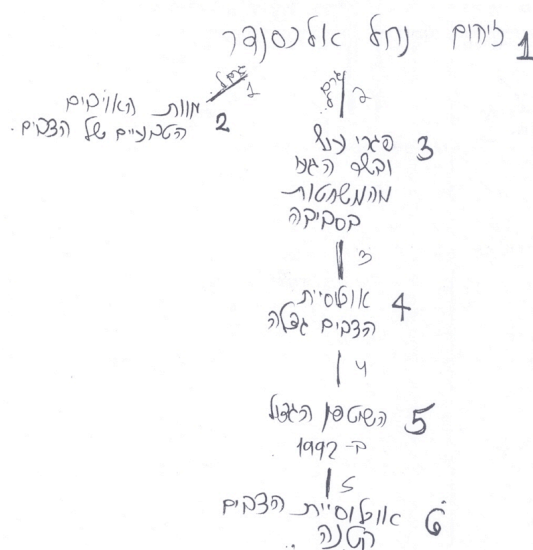 1 זיהום נחל אלכסנדר
גרם ל. 1
גרם ל 2
2 מוות האויבים
הטבעיים של הצבים.
3 פגרי עוף
ובשר הגיעו
מהמשחטות
בסביבה
3
4 אוכלוסיית
הצבים גדלה
4
5 השיטפון הגדול
ב- 1992
5
6 אוכלוסיית הצבים
קטנה